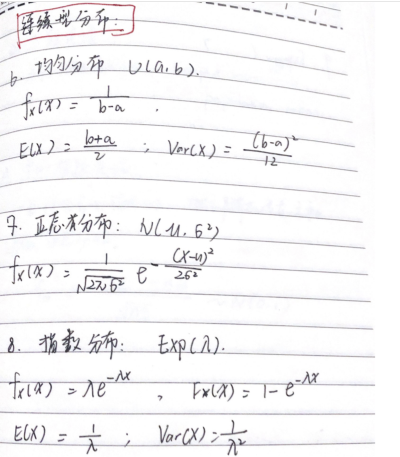 连续型分布:
6. 均匀分布 U(a,b).
fx(x) = 1/(b-a) .
E(X) = (b+a)/2 ; Var(X) = (b-a)²/12
7. 正态分布: N(μ, σ²)
fx(x) = 1/√(2πσ²) e^(-(x-μ)²/(2σ²))
8. 指数分布: Exp(λ).
fx(x) = λe^(-λx) , Fx(x) = 1-e^(-λx)
E(X) = 1/λ ; Var(X) = 1/λ²